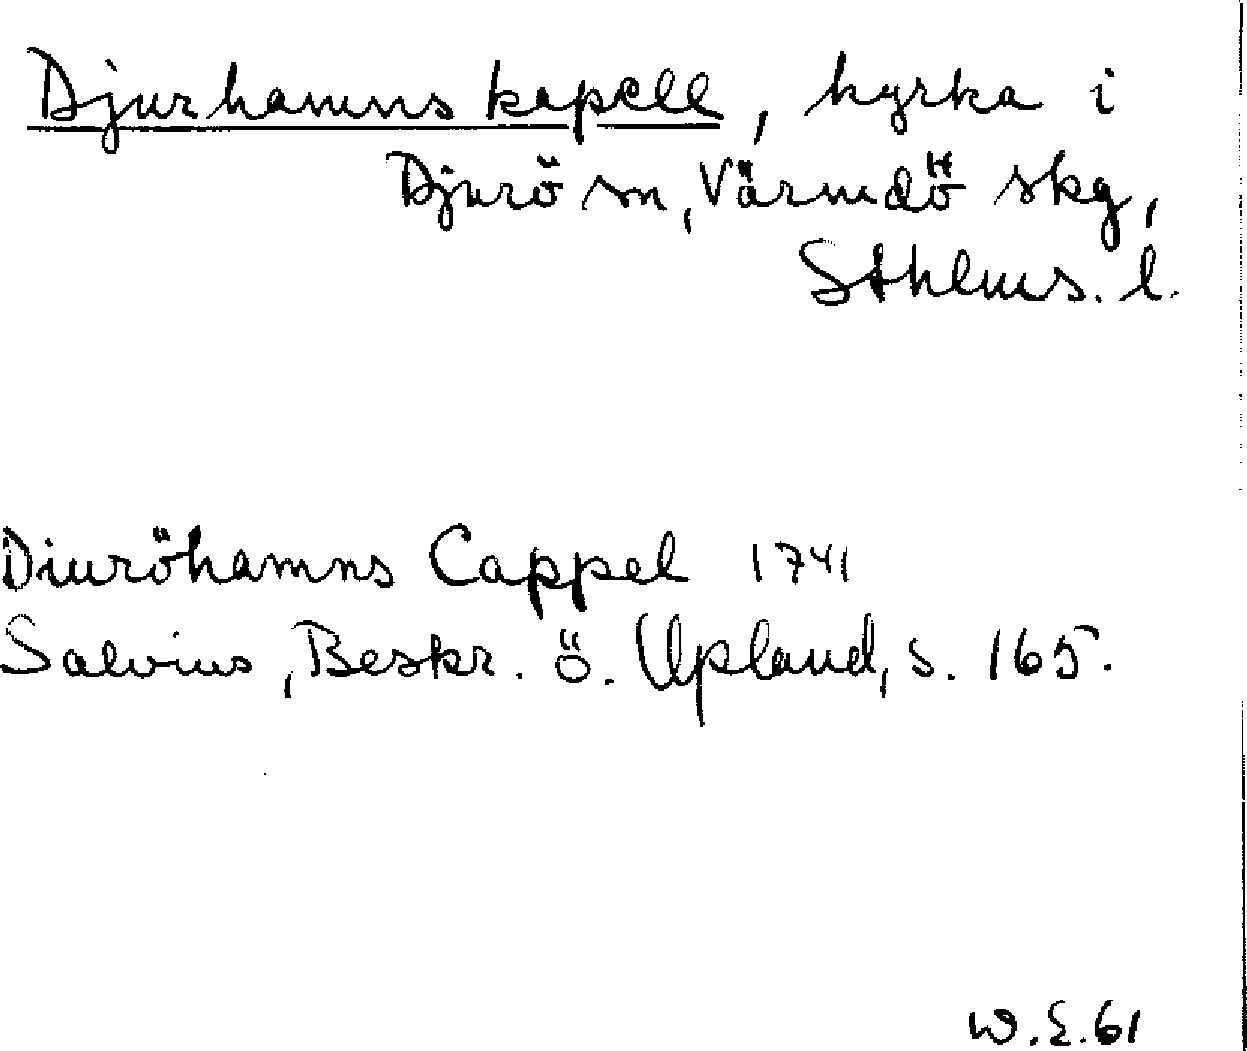 Djurhamns kapell, kyrka i
Djurö sn, Värmdö skg,
Sthlms. l.
Diuröhamns Cappel 1741
Salvius, Beskr. ö. Upland, s. 165.
W.E.61